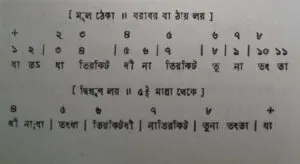 [ মূল ঠেকা ॥ বরাবর বা ঠায় লয় ]
+ ২ ৩ ৪ ৫ ৬ ৭ ৮
১ ২ | ৩ | ৪ | ৫ ৬ | ৭ | ৮ | ৯ | ১০ ১১
ধা তৎ ধা তিরকিট ধী না তিরকিট তু না তৎ তা
[ দ্বিগুন লয় ॥ ৫ই মাত্রা থেকে ]
৪ ৫ ৬ ৭ ৮ +
ধী না;ধা | তৎধা | তিরকিটধী | নাতিরকিট | তুনা তৎতা | ধা